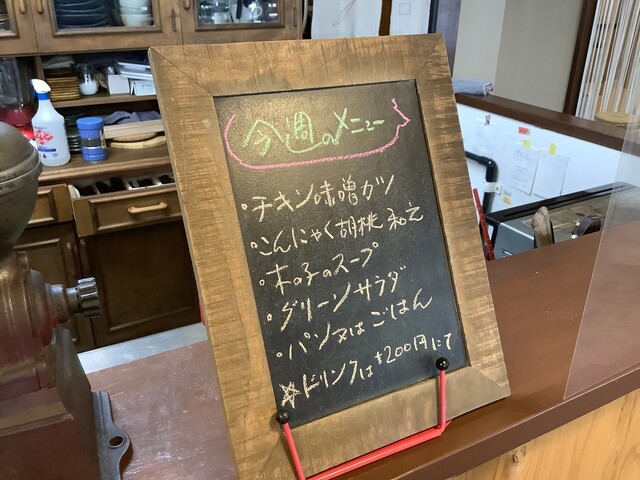 今週のメニュー
・チキン味噌カツ
・こんにゃく胡桃和え
・木の子のスープ
・グリーンサラダ
・パン又はごはん
☆ドリンクは+200円にて